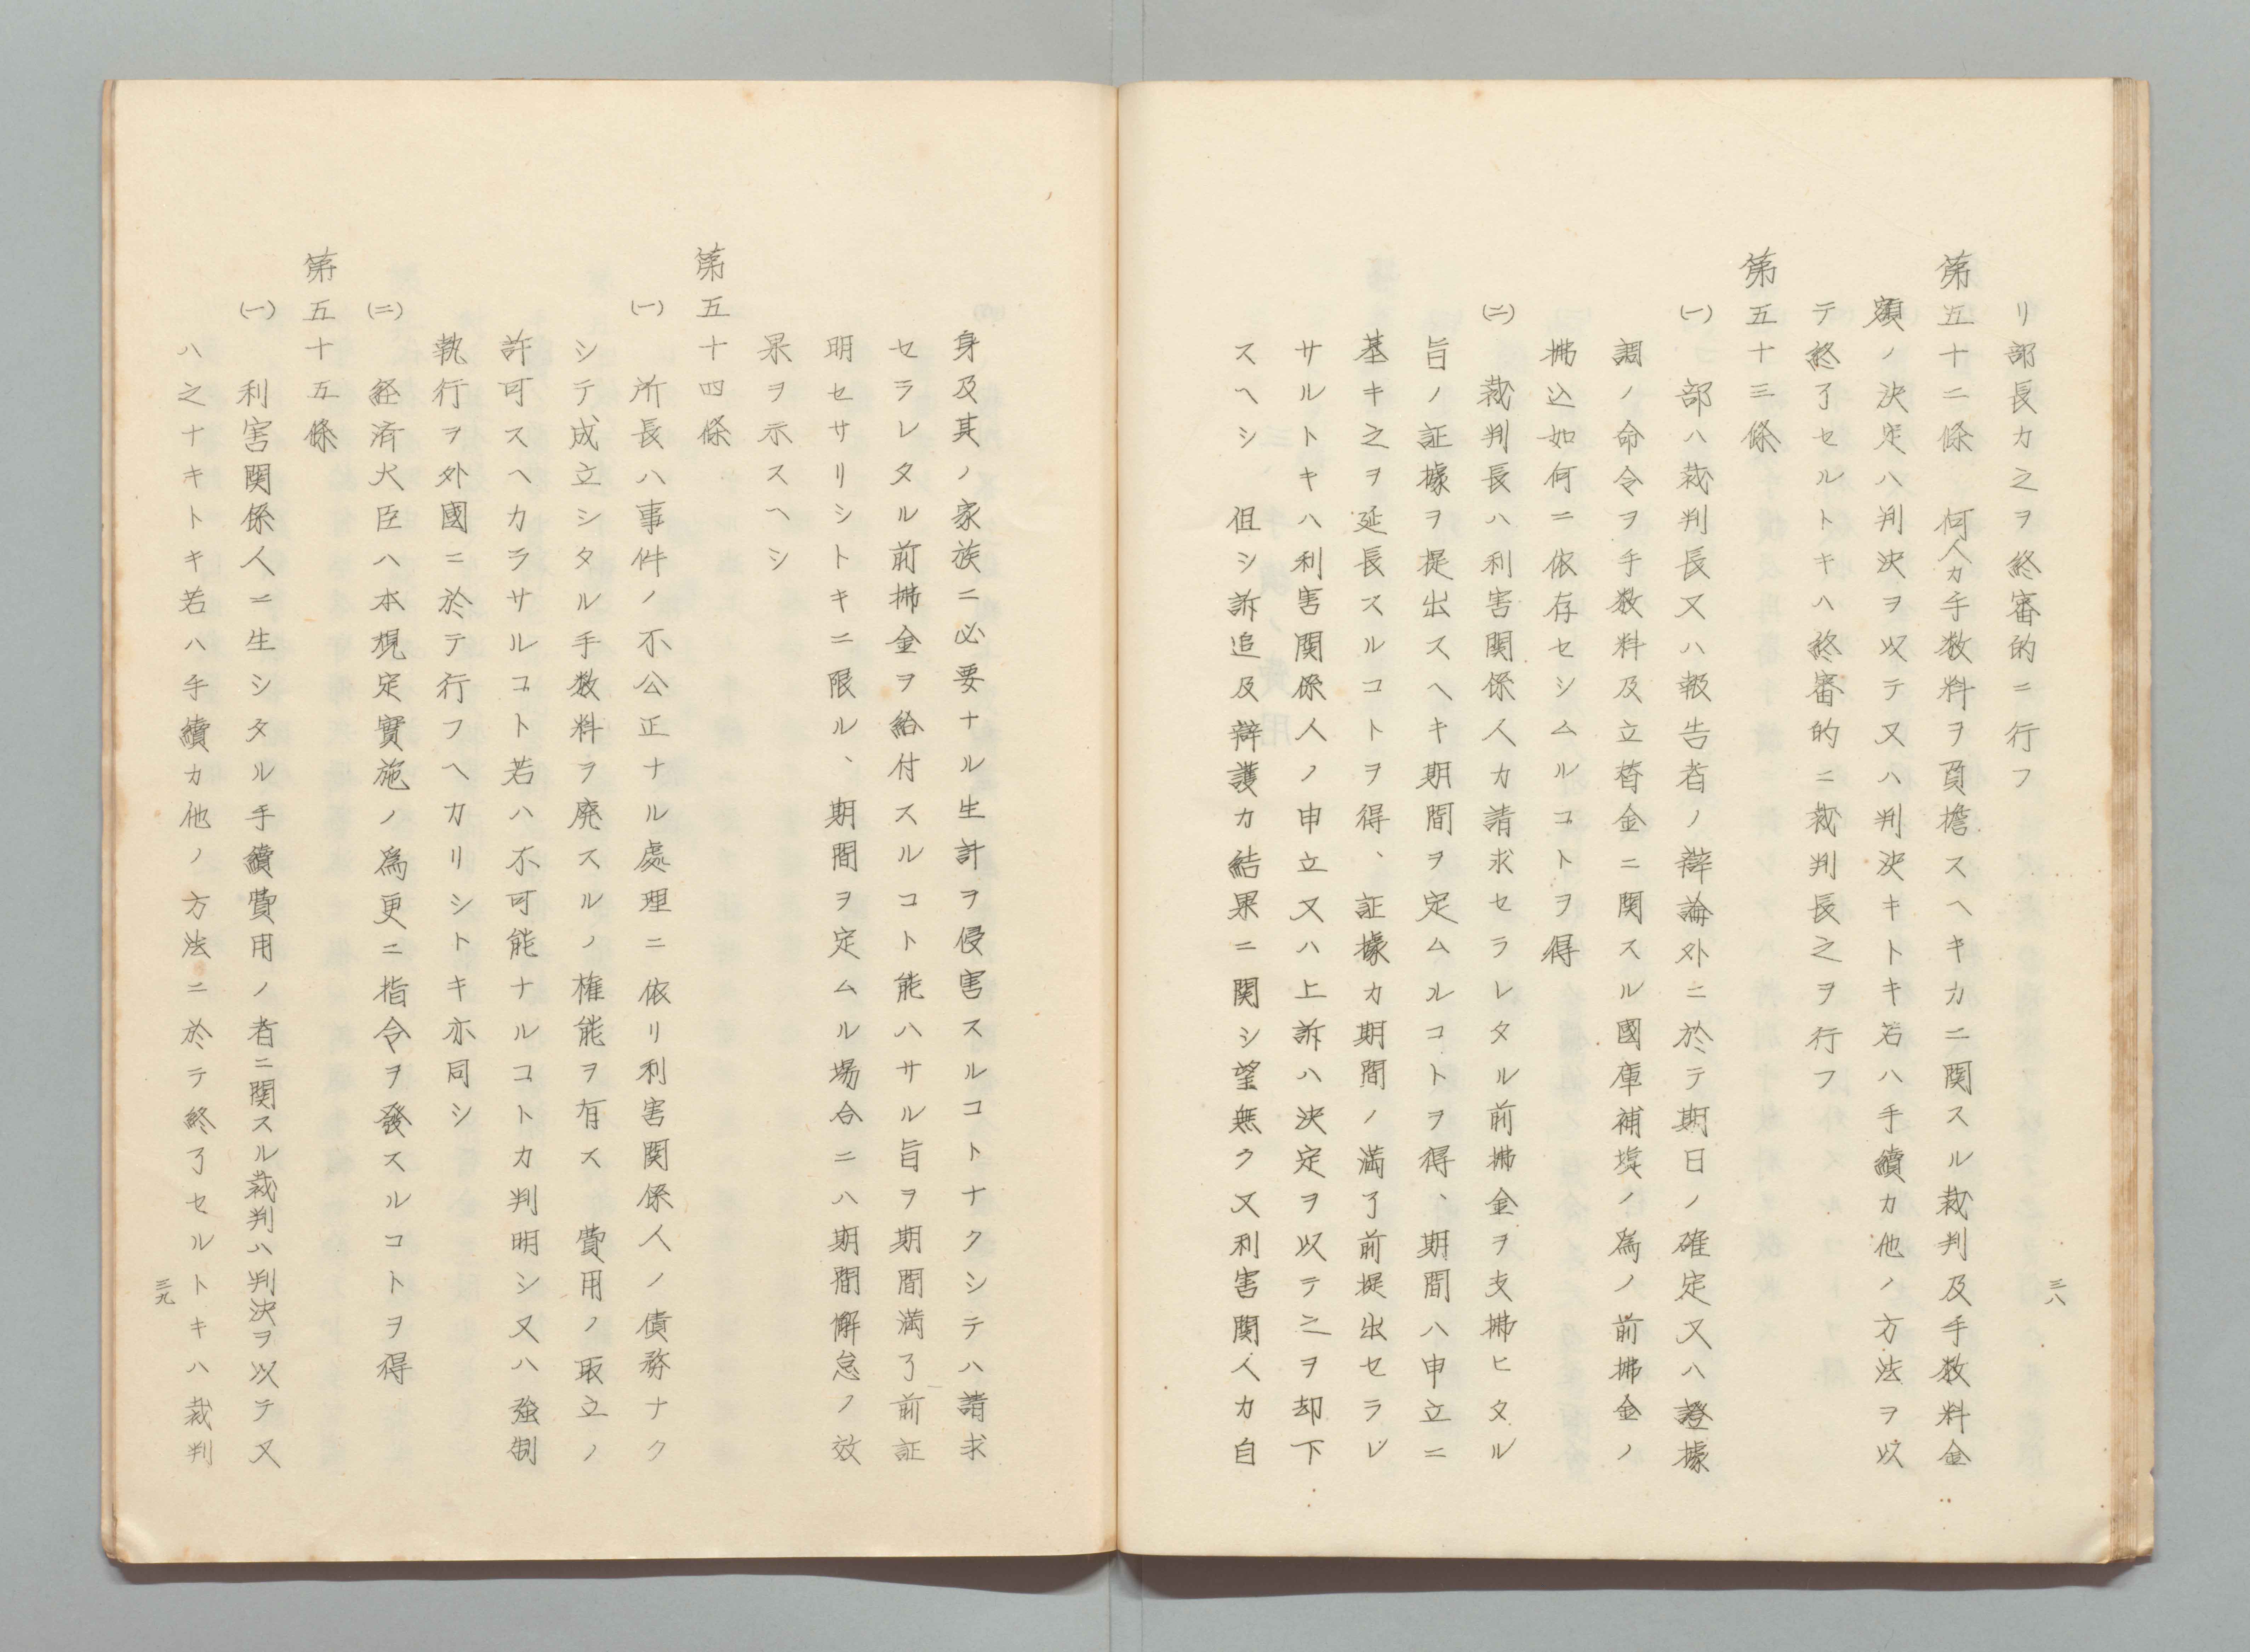 三八
リ部長カ之ヲ終審的ニ行フ
第五十二條　何人カ手数料ヲ負擔スヘキカニ関スル裁判及手数料金
額ノ決定ハ判決ヲ以テ又ハ判決キトキ若ハ手續カ他ノ方法ヲ以
テ終了セルトキハ終審的ニ裁判長之ヲ行フ
第五十三條
㈠　部ハ裁判長又ハ報告者ノ辯論外ニ於テ期日ノ確定又ハ證據
調ノ命令ヲ手数料及立替金ニ関スル國庫補塡ノ為ノ前拂金ノ
拂込如何ニ依存セシムルコトヲ得
㈡　裁判長ハ利害関係人カ請求セラレタル前拂金ヲ支拂ヒタル
旨ノ証據ヲ提出スヘキ期間ヲ定ムルコトヲ得、期間ハ申立ニ
基キ之ヲ延長スルコトヲ得、証據カ期間ノ満了前提出セラレ
サルトキハ利害関係人ノ申立又ハ上訴ハ決定ヲ以テ之ヲ却下
スヘシ　但シ訴追及辯護カ結果ニ関シ望無ク又利害関人カ自
身及其ノ家族ニ必要ナル生計ヲ侵害スルコトナクシテハ請求
セラレタル前拂金ヲ給付スルコト能ハサル旨ヲ期間満了前証
明セサリシトキニ限ル、期間ヲ定ムル場合ニハ期間懈怠ノ效
果ヲ示スヘシ
第五十四條
㈠　所長ハ事件ノ不公正ナル處理ニ依リ利害関係人ノ債務ナク
シテ成立シタル手数料ヲ廃スルノ権能ヲ有ス　費用ノ取立ノ
許可スヘカラサルコト若ハ不可能ナルコトカ判明シ又ハ強制
執行ヲ外國ニ於テ行フヘカリシトキ亦同シ
㈡　経済大臣ハ本規定實施ノ為更ニ指令ヲ發スルコトヲ得
第五十五條
㈠　利害関係人ニ生シタル手續費用ノ者ニ関スル裁判ハ判決ヲ以テ又
ハ之ナキトキ若ハ手續カ他ノ方法ニ於テ終了セルトキハ裁判
三九